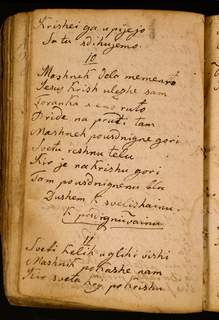 Krishei ga upijejo
Sa tu sdihujemo.
10
Mashnek dolo memento
Jesus Krish uleshe sam
ruto
Pride na prut. tam
Mashnek pousdnigne gori
Svetu rishnu telu
Kir je na krishu gori
Tam pousdnignenu blu
Dushem k svelizhainu.
K
11
Sveti Kelih uglihi vishi
Mashnik pokashe nam
Kir sveta kry po krishu